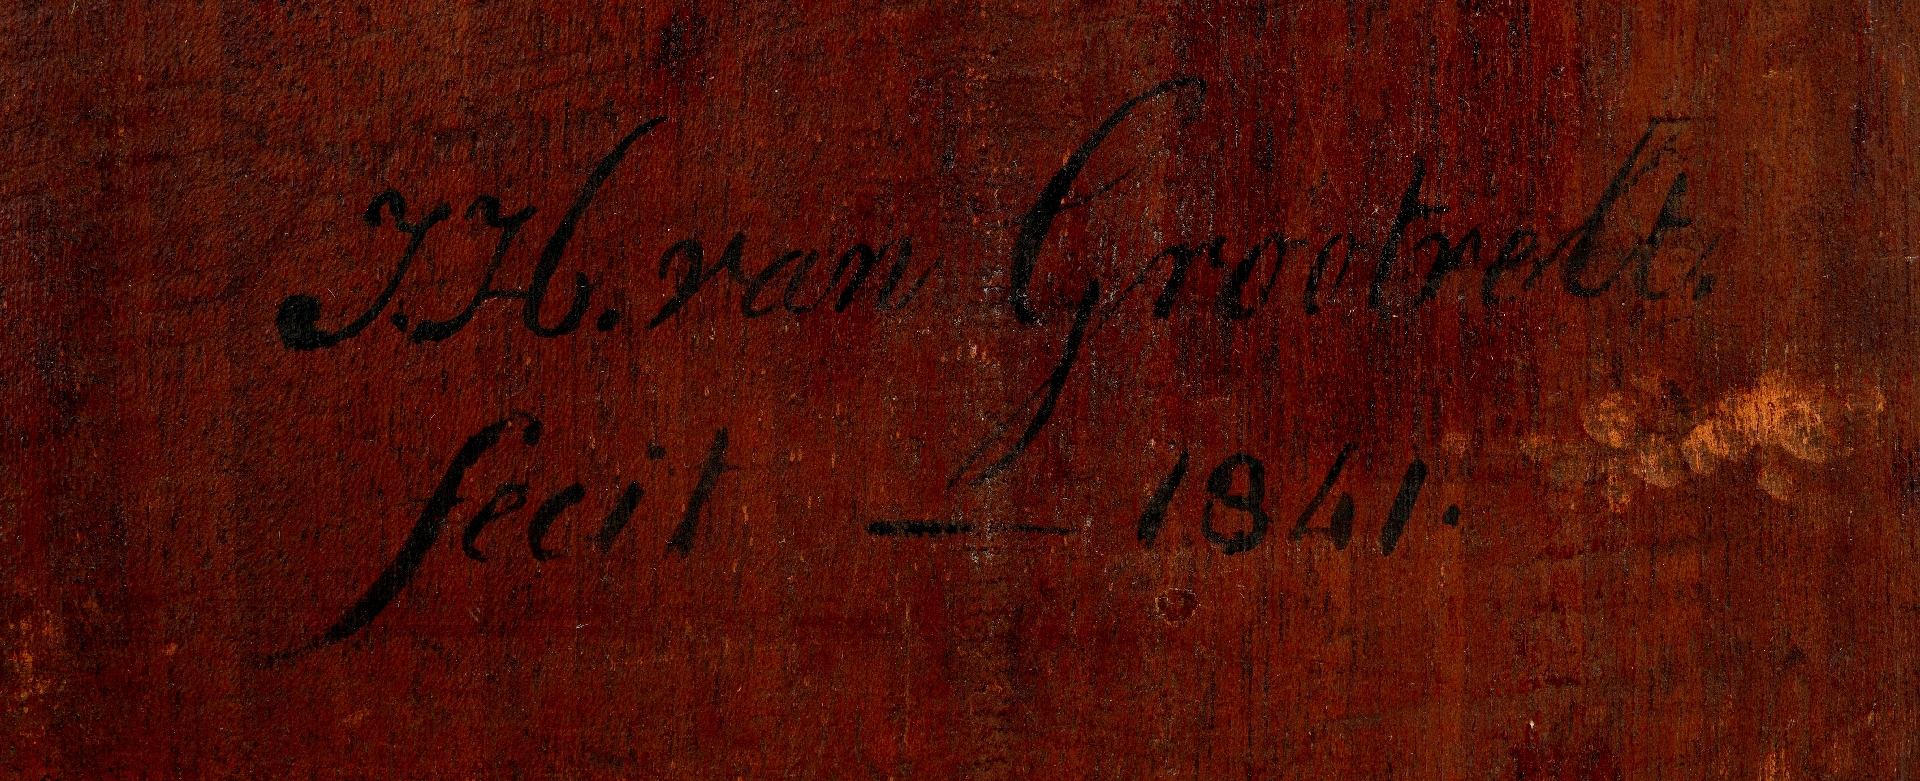 J.H. van Grootvelt.
fecit — 1841.